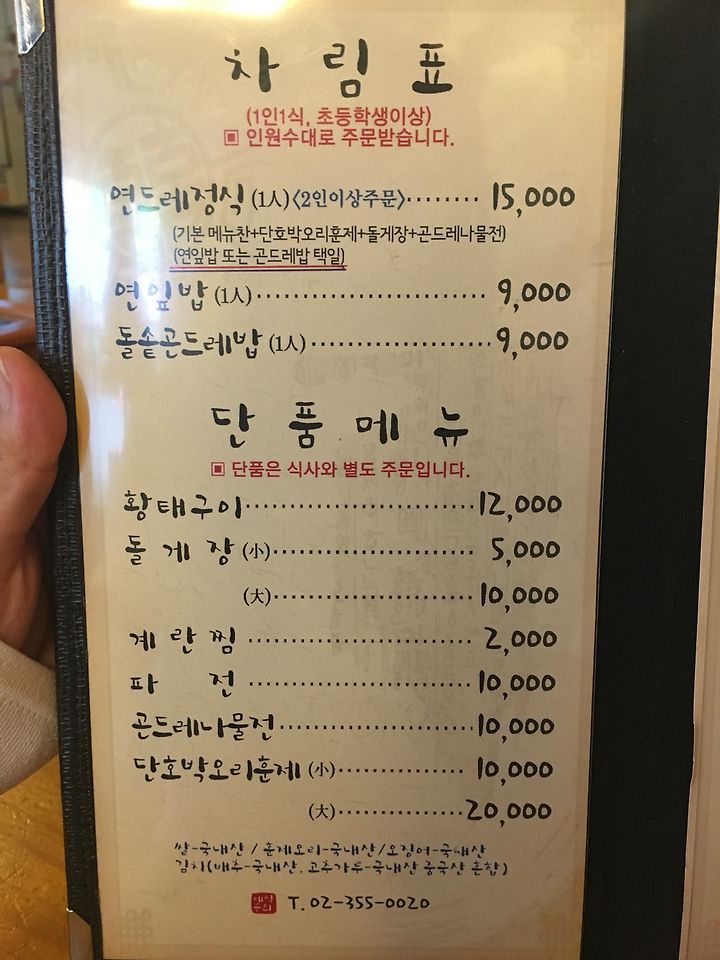 차림표
(1인1식, 초등학생이상)
▣ 인원수대로 주문받습니다.
연드레정식 (1人)〈2인이상주문〉········ 15,000
(기본 메뉴찬+단호박오리훈제+돌게장+곤드레나물전)
(연잎밥 또는 곤드레밥 택일)
연잎밥 (1人)························· 9,000
돌솥곤드레밥 (1人)····················9,000
단품메뉴
▣ 단품은 식사와 별도 주문입니다.
황태구이·························12,000
돌게장 (小)······················ 5,000
(大)······················10,000
계란찜 ························ 2,000
파전 ························10,000
곤드레나물전·····················10,000
단호박오리훈제 (小)·············· 10,000
(大)··············20,000
쌀-국내산 / 훈제오리-국내산/오징어-국내산
김치(배추-국내산. 고추가루-국내산 중국산 혼합)
예약문의 T. 02-355-0020